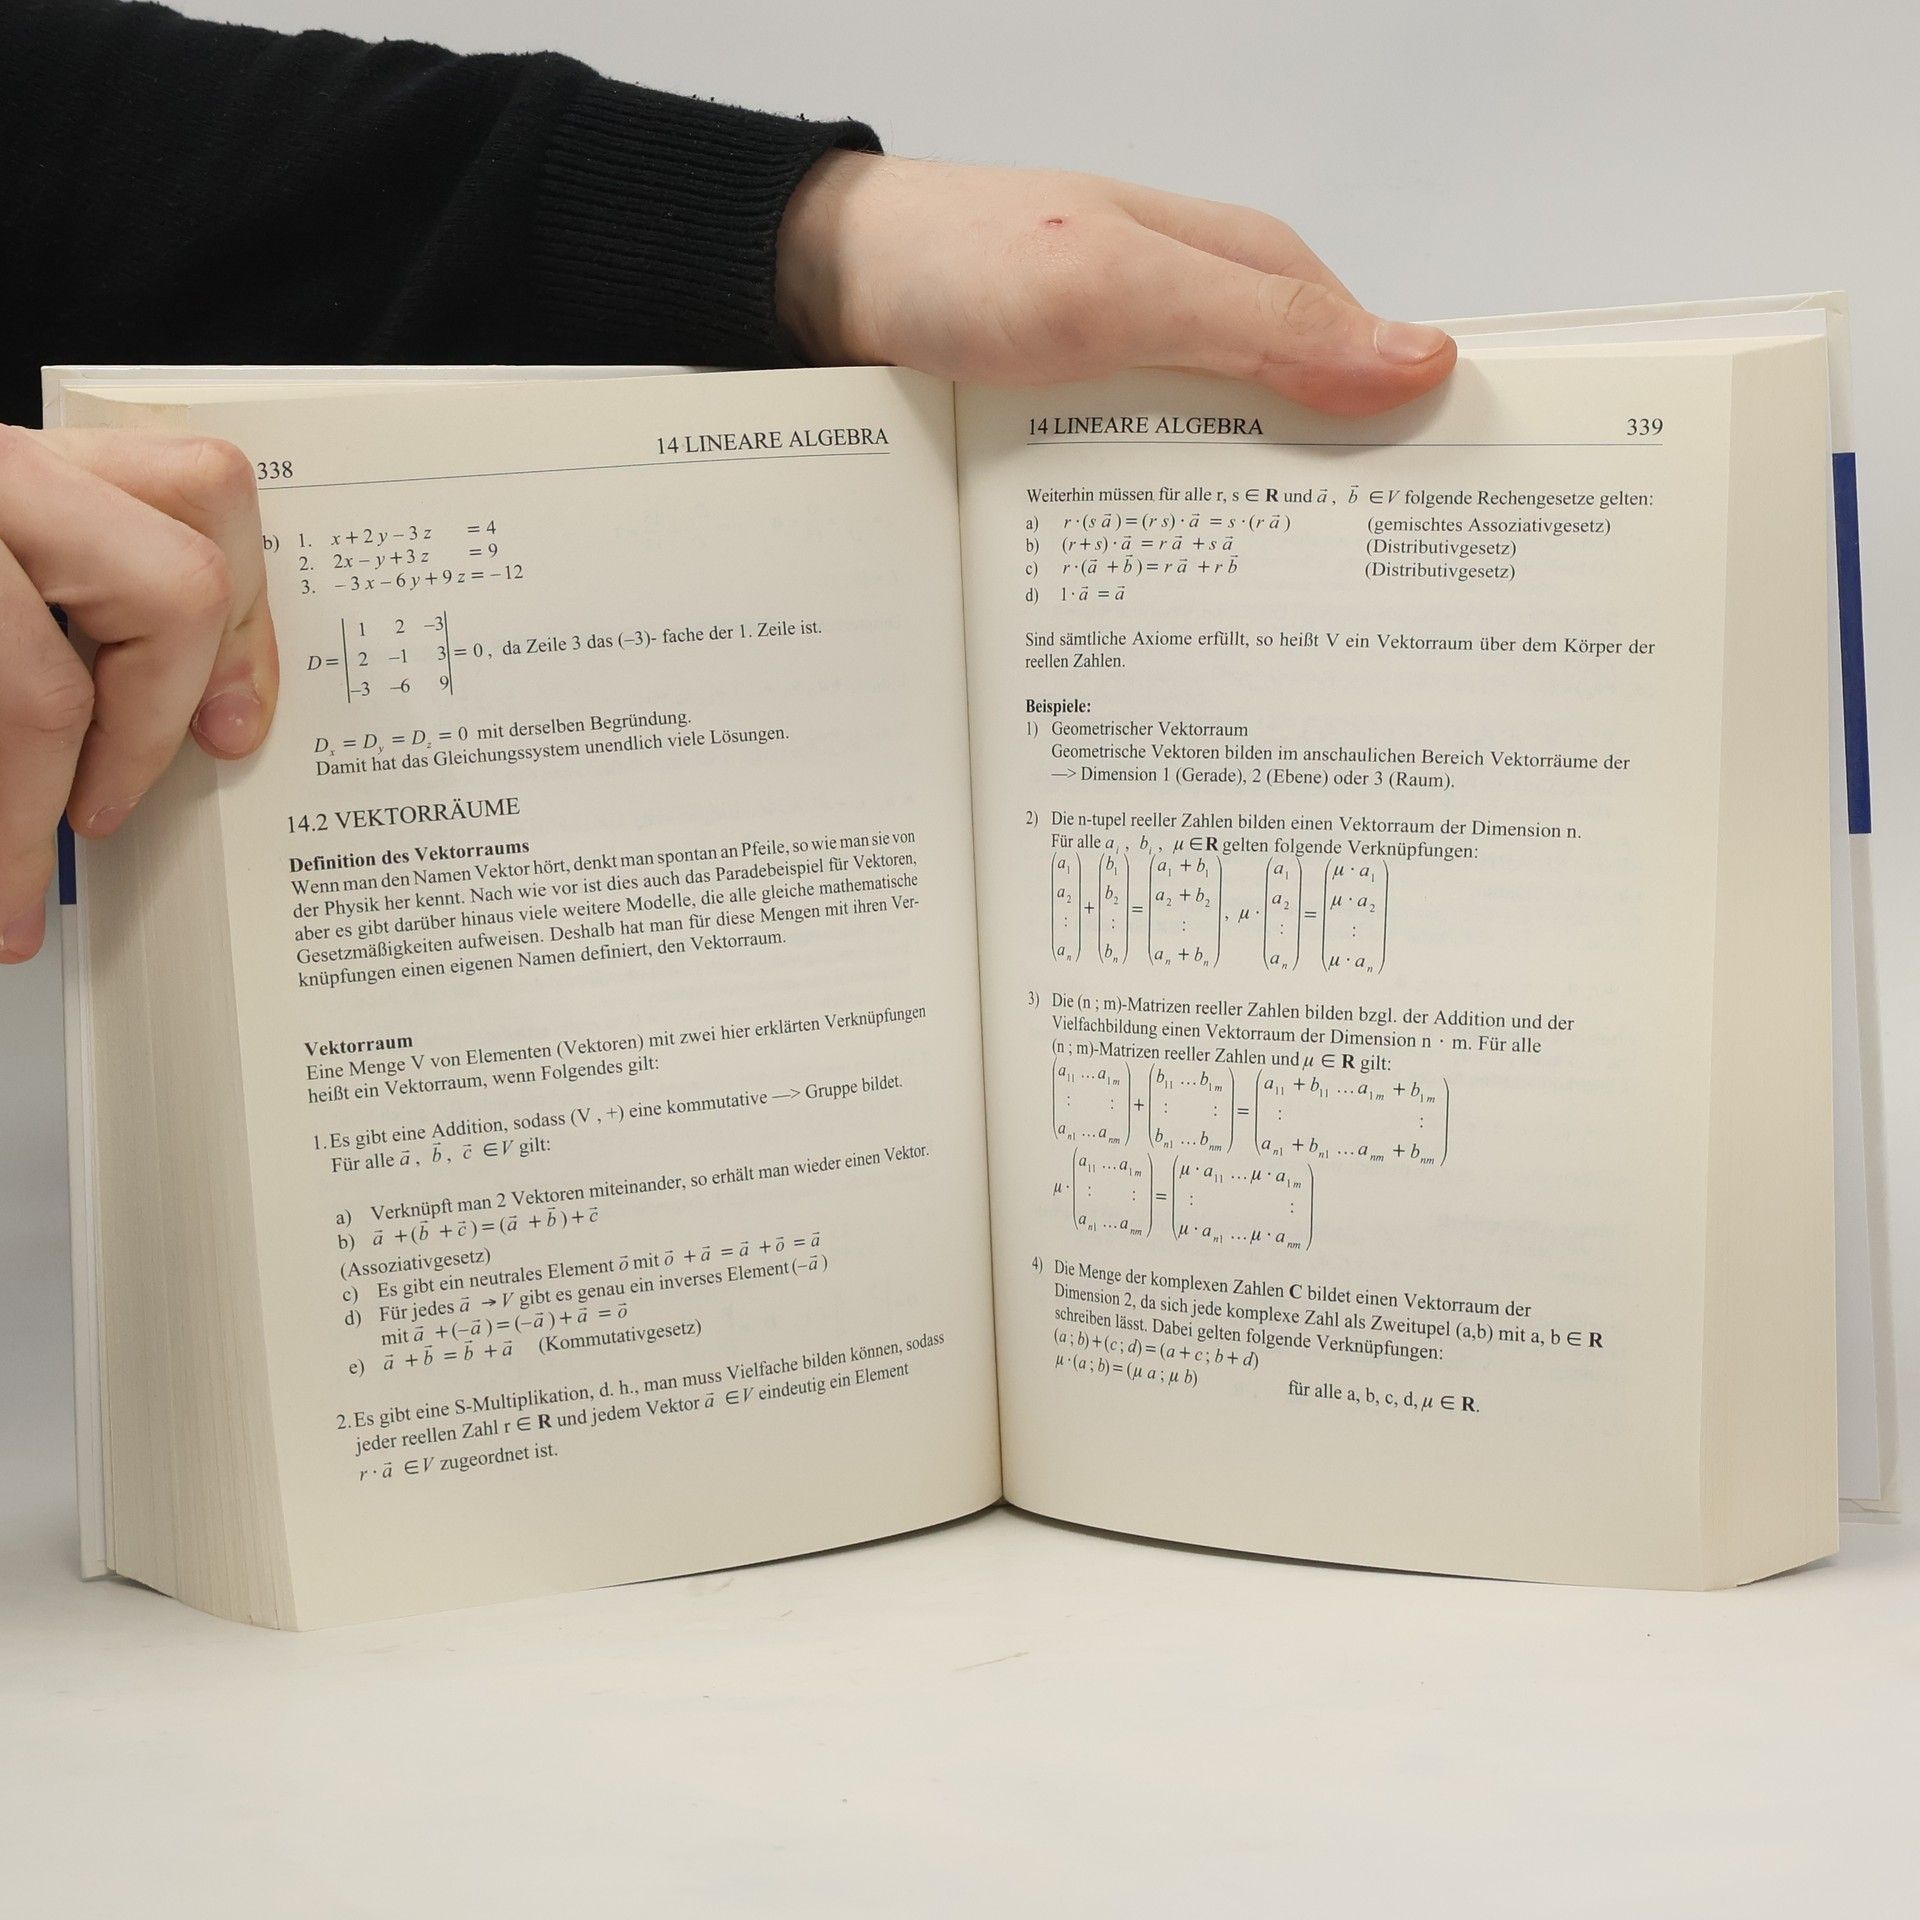 338
14 LINEARE ALGEBRA
b) 1. x + 2 y – 3 z = 4
2. 2x – y + 3 z = 9
3. – 3 x – 6 y + 9 z = – 12
D = | 1 2 –3 |
| 2 –1 3 | = 0 , da Zeile 3 das (–3)- fache der 1. Zeile ist.
| –3 –6 9 |
Dₓ = D_y = D_z = 0 mit derselben Begründung.
Damit hat das Gleichungssystem unendlich viele Lösungen.
14.2 VEKTORRÄUME
Definition des Vektorraums
Wenn man den Namen Vektor hört, denkt man spontan an Pfeile, so wie man sie von
der Physik her kennt. Nach wie vor ist dies auch das Paradebeispiel für Vektoren,
aber es gibt darüber hinaus viele weitere Modelle, die alle gleiche mathematische
Gesetzmäßigkeiten aufweisen. Deshalb hat man für diese Mengen mit ihren Ver-
knüpfungen einen eigenen Namen definiert, den Vektorraum.
Vektorraum
Eine Menge V von Elementen (Vektoren) mit zwei hier erklärten Verknüpfungen
heißt ein Vektorraum, wenn Folgendes gilt:
1. Es gibt eine Addition, sodass (V , +) eine kommutative —> Gruppe bildet.
Für alle a⃗ , b⃗ , c⃗ ∈ V gilt:
a) Verknüpft man 2 Vektoren miteinander, so erhält man wieder einen Vektor.
b) a⃗ + (b⃗ + c⃗) = (a⃗ + b⃗) + c⃗
(Assoziativgesetz)
c) Es gibt ein neutrales Element o⃗ mit o⃗ + a⃗ = a⃗ + o⃗ = a⃗
d) Für jedes a⃗ → V gibt es genau ein inverses Element (–a⃗)
mit a⃗ + (–a⃗) = (–a⃗) + a⃗ = o⃗
e) a⃗ + b⃗ = b⃗ + a⃗ (Kommutativgesetz)
2. Es gibt eine S-Multiplikation, d. h., man muss Vielfache bilden können, sodass
jeder reellen Zahl r ∈ R und jedem Vektor a⃗ ∈ V eindeutig ein Element
r · a⃗ ∈ V zugeordnet ist.
14 LINEARE ALGEBRA
339
Weiterhin müssen für alle r, s ∈ R und a⃗ , b⃗ ∈ V folgende Rechengesetze gelten:
a) r · (s a⃗) = (r s) · a⃗ = s · (r a⃗) (gemischtes Assoziativgesetz)
b) (r + s) · a⃗ = r a⃗ + s a⃗ (Distributivgesetz)
c) r · (a⃗ + b⃗) = r a⃗ + r b⃗ (Distributivgesetz)
d) 1 · a⃗ = a⃗
Sind sämtliche Axiome erfüllt, so heißt V ein Vektorraum über dem Körper der
reellen Zahlen.
Beispiele:
1) Geometrischer Vektorraum
Geometrische Vektoren bilden im anschaulichen Bereich Vektorräume der
—> Dimension 1 (Gerade), 2 (Ebene) oder 3 (Raum).
2) Die n-tupel reeller Zahlen bilden einen Vektorraum der Dimension n.
Für alle aᵢ , bᵢ , μ ∈ R gelten folgende Verknüpfungen:
(a₁) (b₁) (a₁ + b₁) (a₁) (μ · a₁)
(a₂) + (b₂) = (a₂ + b₂) , μ · (a₂) = (μ · a₂)
: : : : :
(aₙ) (bₙ) (aₙ + bₙ) (aₙ) (μ · aₙ)
3) Die (n ; m)-Matrizen reeller Zahlen bilden bzgl. der Addition und der
Vielfachbildung einen Vektorraum der Dimension n · m. Für alle
(n ; m)-Matrizen reeller Zahlen und μ ∈ R gilt:
(a₁₁ …a₁ₘ) (b₁₁ …b₁ₘ) (a₁₁ + b₁₁ …a₁ₘ + b₁ₘ)
: : + : : = : :
(aₙ₁ …aₙₘ) (bₙ₁ …bₙₘ) (aₙ₁ + bₙ₁ …aₙₘ + bₙₘ)
(a₁₁ …a₁ₘ) (μ · a₁₁ …μ · a₁ₘ)
μ · : : = : :
(aₙ₁ …aₙₘ) (μ · aₙ₁ …μ · aₙₘ)
4) Die Menge der komplexen Zahlen C bildet einen Vektorraum der
Dimension 2, da sich jede komplexe Zahl als Zweitupel (a,b) mit a, b ∈ R
schreiben lässt. Dabei gelten folgende Verknüpfungen:
(a ; b) + (c ; d) = (a + c ; b + d)
μ · (a ; b) = (μ a ; μ b)
für alle a, b, c, d, μ ∈ R.